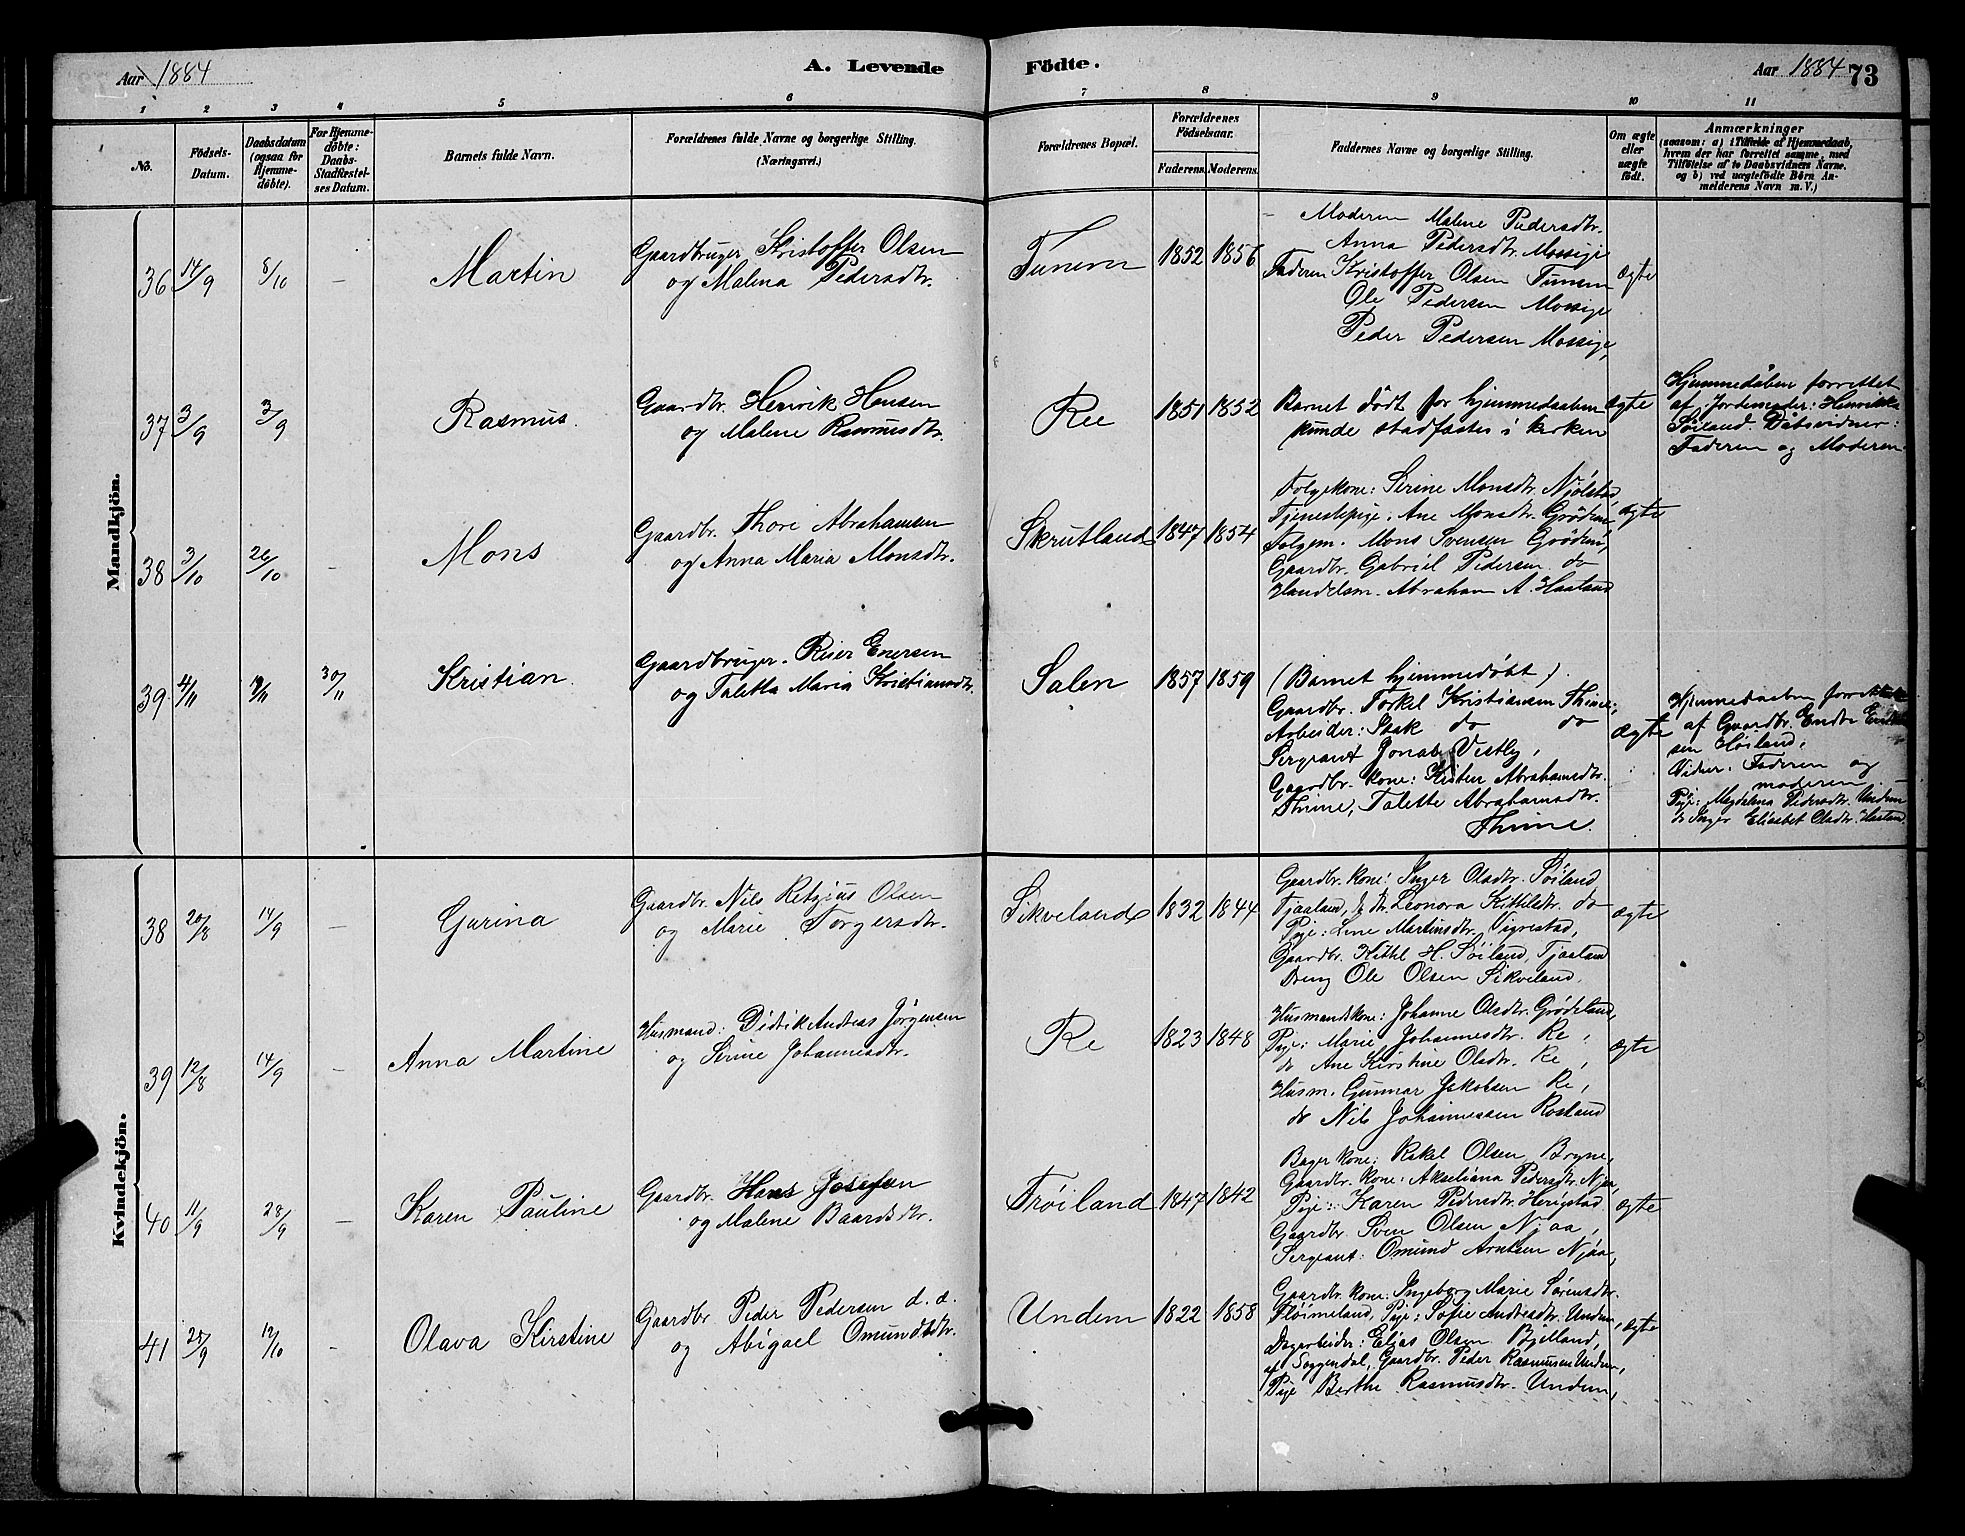 Aar 1884
A. Levende Födte.
Aar 1884 73
1 2 3 4 5 6 7 8 9 10 11
No.
Födsels-Datum.
Daabsdatum (ogsaa for Hjemmedöbte).
For Hjemmedöbte: Daabs-Stadfæstelses Datum.
Barnets fulde Navn.
Forældrenes fulde Navne og borgerlige Stilling. (Næringsvei.)
Forældrenes Bopæl.
Forældrenes Födselsaar.
Faderens. Moderens.
Faddernes Navne og borgerlige Stilling.
Om ægte eller uægte födt.
Anmærkninger
(saasom: a) i Tilfælde af Hjemmedaab, hvem der har forrettet samme, med Tilföielse af to Daabsvidners Navne, og b) ved uægtefödte Börn Anmelderens Navn m. V.)
Mandkjön.
36 14/9 8/10 – Martin
Gaardbruger Kristoffer Olsen
og Malena Pedersdtr.
Tunem 1852 1856
– Moderen Malene Pedersdtr.
Anna Pedersdtr. Mossige
Faderen Kristoffer Olsen Tunem
Ole Pedersen Mossige
Peder Pedersen Mossige,
ægte
37 3/9 3/9 Rasmus.
Gaardbr. Henrik Hansen
og Malene Rasmusdtr.
Ree 1851 1852
Barnet dödt før hjemmedaaben
kunde stadfæstes i kirken
ægte
Hjemmedåben forrettet
af Jordemoder: Henrikka
Söiland. Dåbsvidner:
Faderen og Moderen.
38 3/10 26/10 – Mons
Gaardbr. Thore Abrahamsen
og Anna Maria Monsdtr.
Skrutland 1847 1854
Folgekone: Serine Monsdtr. Njölstad,
Tjenestepige, Ane Monsdtr. Grödem,
Folgem. Mons Svensen Grödem,
Gaardbr. Gabriel Pedersen do
Handelsm. Abraham A. Haaland
ægte
39 4/11 11/11 30/11 Kristian.
Gaardbruger. Reier Enersen
og Taletta Maria Kristiansdtr.
Salen 1857 1859
(Barnet hjemmedöbt).
Gaardbr. Torkel Kristiansen Thime,
Arbeider: Isak do do
Sergeant Jonas Vestly,
Gaardbr. kone: Kisten Abrahamsdtr.
Thime, Talette Abrahamsdtr.
Thime.
ægte
Hjemmedaaben forrettet
af Gaardbr. Endre
sen Höiland,
Vidner: Faderen og
moderen
Pige: Magdalena Pedersdtr. Undem
do Inger Elisabet Olsdtr.
Kvindekjön.
38 20/8 14/9 – Gurina
Gaardbr. Nils Retzius Olsen
og Marie Torgersdtr.
Sikveland 1832 1844
Gaardbr. kone: Inger Olsdtr. Söiland,
Tjaaland, Leonora Kittilsdtr. do
Pige: Line Martinsdtr. Vigrestad,
Gaardbr. Kittil H. Söiland, Tjaaland
Dreng Ole Olsen Sikveland,
ægte
39 12/8 14/9 – Anna Martine
Husmand: Didrik Andreas Jörgensen
og Serine Johannesdtr.
Re 1823 1848
Husmandskone: Johanne Olsdtr. Grödeland,
Pige: Marie Johannesdtr. Re,
do Ane Kirstine Olsdtr. Re,
Husm. Gunnar Jakobsen Re,
do Nils Johannessen Rosland
ægte
40 11/9 28/9 – Karen Pauline
Gaardbr. Hans Josefsen
og Malene Baardsdtr.
Fröiland 1847 1842
Bager kone: Rakel Olsen Bryne,
Gaardbr. kone: Akseliana Pedersdtr. Njaa,
Pige: Karen Pedersdtr. Herigstad
Gaardbr. Sven Olsen Njaa,
Sergeant: Omund Arntsen Njaa,
ægte
41 25/9 12/10 – Olava Kirstine
Gaardbr. Peder Pedersen d. æ.
og Abigael Omundsdtr.
Undem 1822 1858
Gaardbr. kone: Ingeborg Marie Sörensdtr.
Flöimeland, Pige: Sofie Andreasdtr. Undem,
Dagarbeider: Elias Olsen Bjelland,
af Soggendal, Gaardbr. Peder Rasmusen Undem,
Pige Berthe Rasmusdtr. Undem,
ægte